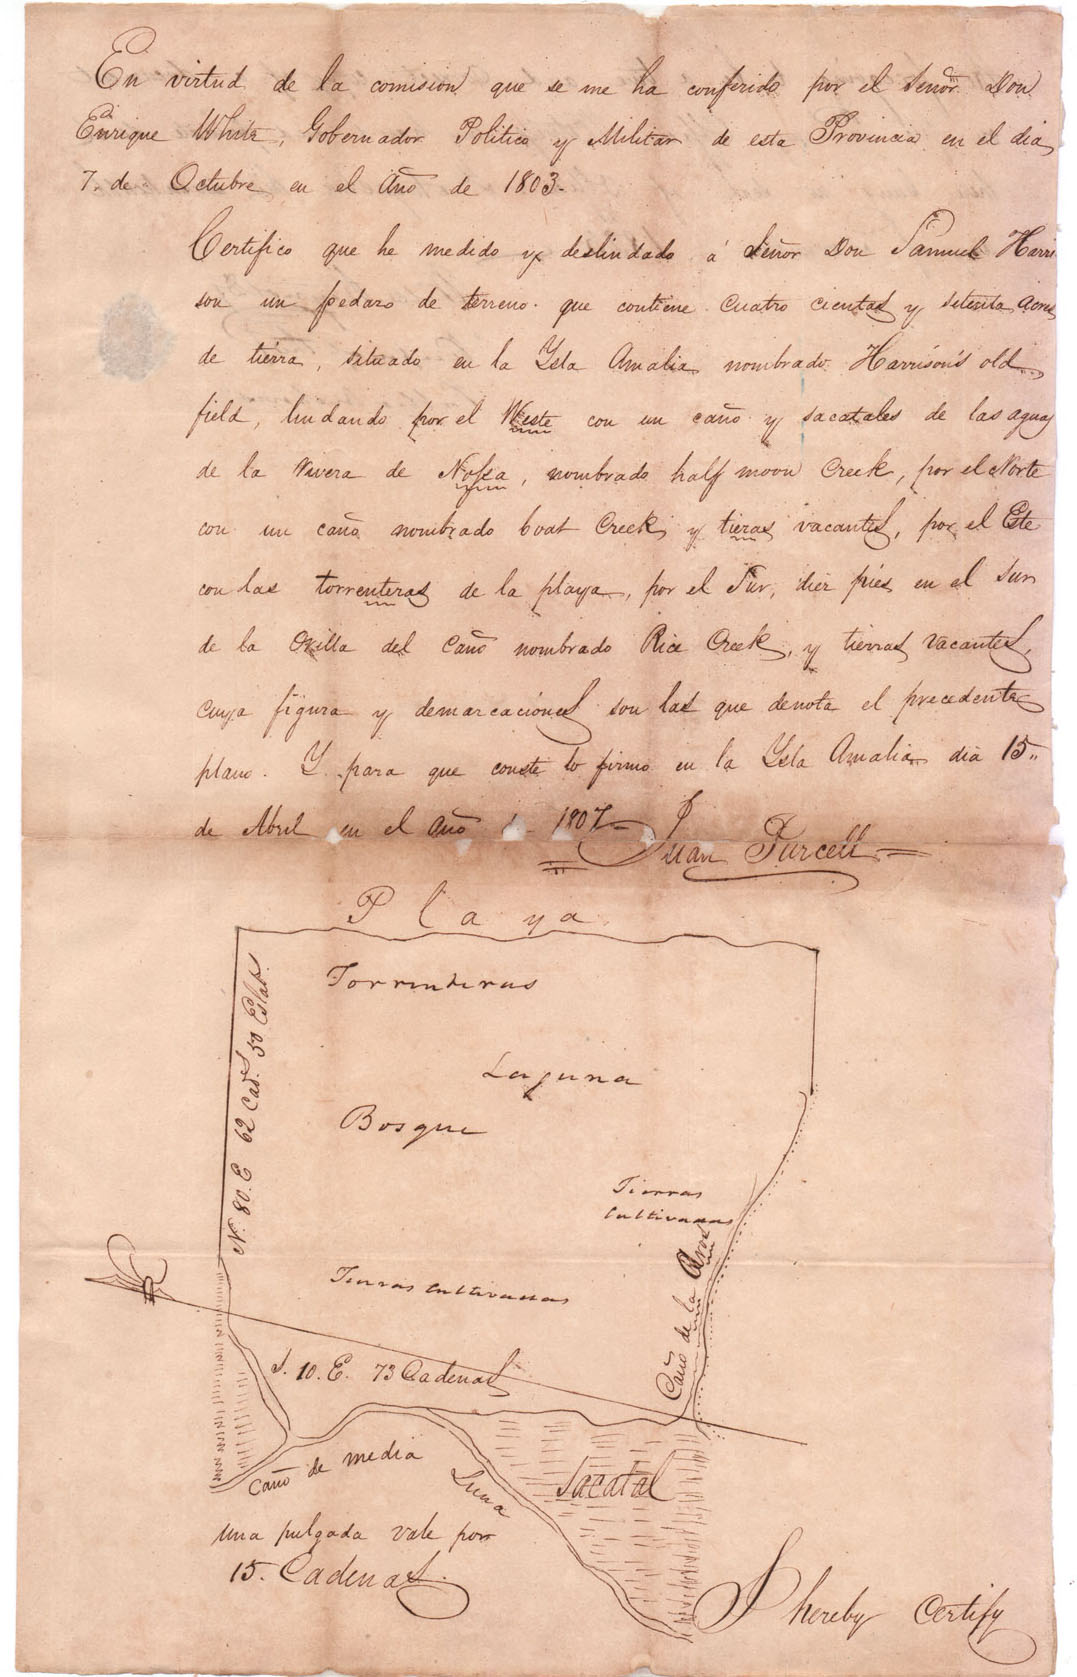 En virtud de la comision que se me ha conferido por el Señor Don
Enrique White, Gobernador Politico y Militar de esta Provincia en el dia
7. de Octubre en el Año de 1803-
Certifico que he medido y deslindado á Señor Don Samuel Harri
son un pedazo de terreno que contiene cuatro cientas y setenta Acres
de tiérra, situado en la Ysla Amalia nombrado Harrison's old
field, lindando por el Weste con un caño y sacatales de las aguas
de la Rivera de Nossa, nombrado half moon Creek, por el Norte
con un caño nombrado boat Creek y tieras vacantes, por el Este
con las torrenteras de la playa, por el Sur, diez piés en el Sur
de la Orilla del Caño nombrado Rice Creek, y tierras vacantes,
cuya figura y demarcaciónes son las que denota el precedente
plano. Y para que conste lo firmo en la Ysla Amalia dia 15..
de Abril en el Año 1807-
Juan Purcell
Playa
Torrenteras
N. 80. E 62 Cads. 50 Eslabs.
Laguna
Bosque
Tierras
Cultivadas
Caño de la Aroz
Tierras Cultivadas
S. 10. E. 73 Cadenas
Caño de media
Luna
Sacatal
una pulgada vale por
15. Cadenas.
I hereby Certify